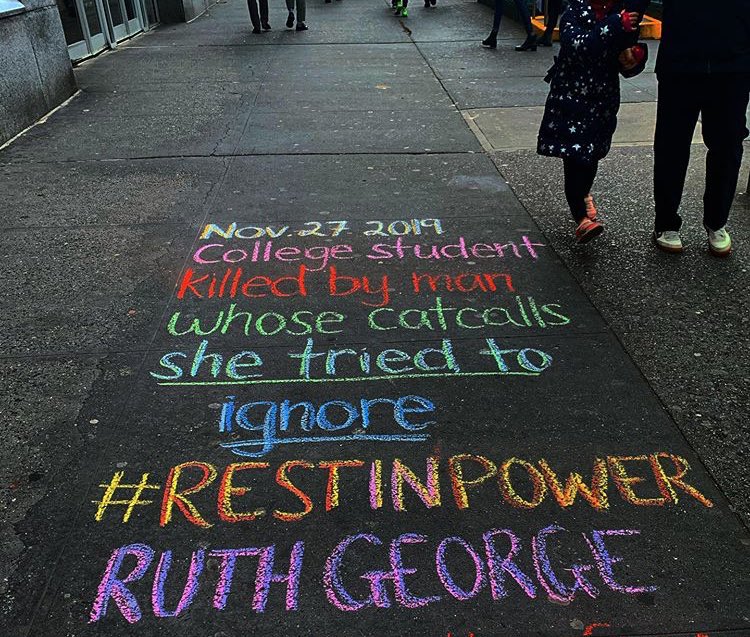 Nov. 27 2019
College student
killed by man
whose catcalls
she tried to
ignore
#RESTINPOWER
RUTH GEORGE